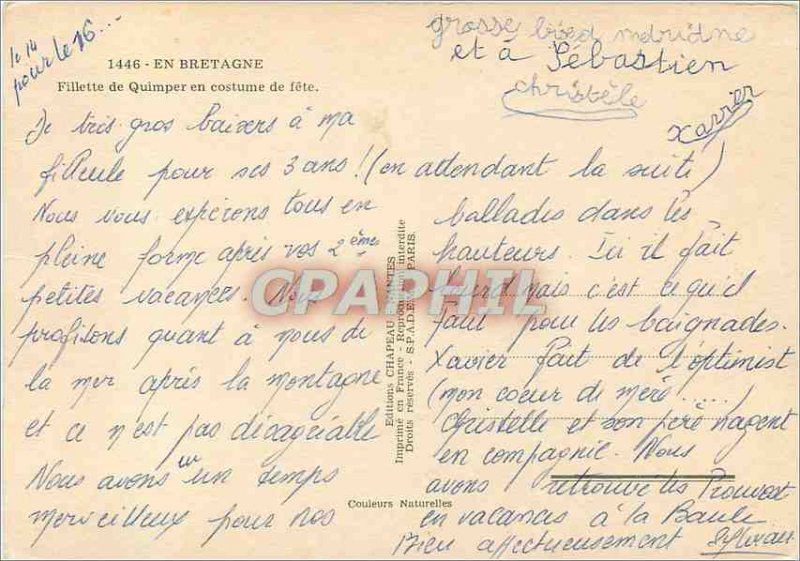 le 14
pour le 16...
1446 - EN BRETAGNE
Fillette de Quimper en costume de fête.
grosse
et à Sébastien
christèle
Xavier
De très gros baisers à ma
filleule pour ses 3 ans! (en attendant la suite)
Nous vous espérons tous en
pleine forme après vos 2èmes
petites vacances. Nous
profitons quant à nous de
la mer après la montagne
et ce n'est pas désagréable
Nous avons eu un temps
merveilleux pour nos
ballades dans les
hauteurs. Ici il fait
lourd mais c'est ce qu'il
faut pour les baignades.
Xavier fait de l'optimist
(mon coeur de mère.....)
Christelle et son père nagent
en compagnie. Nous
avons retrouvé les Prouvost
en vacances à la Baule
Bien affectueusement
Editions CHAPEAU - NANTES
Imprimé en France - Reproduction interdite
Droits réservés - S.P.A.D.E.M. PARIS.
Couleurs Naturelles
CPAPHIL